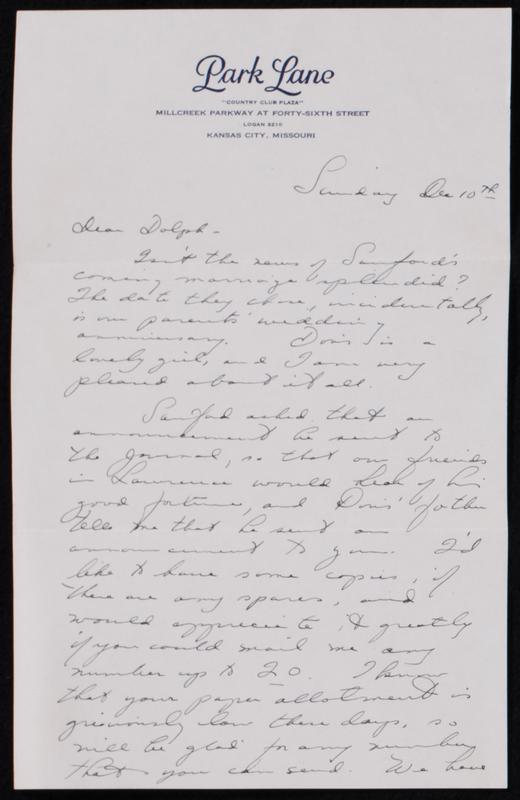 Park Lane
"COUNTRY CLUB PLAZA"
MILLCREEK PARKWAY AT FORTY-SIXTH STREET
LOGAN 5210
KANSAS CITY, MISSOURI
Sunday Dec 10th
Dear Dolph -
Isn't the news of Sanford's
coming marriage splendid?
The date they chose, incidentally,
is our parents' wedding
anniversary. Doris is a
lovely girl, and I am very
pleased about it all.
Sanford asked that an
announcement be sent to
the Journal, so that our friends
in Lawrence would hear of his
good fortune, and Doris' father
tells me that he sent an
announcement to you. I'd
like to have some copies, if
there are any spares, and
would appreciate it greatly
if you could mail me any
number up to 20. I know
that your paper allotment is
grievously low these days, so
will be glad for any number
that you can send. We have